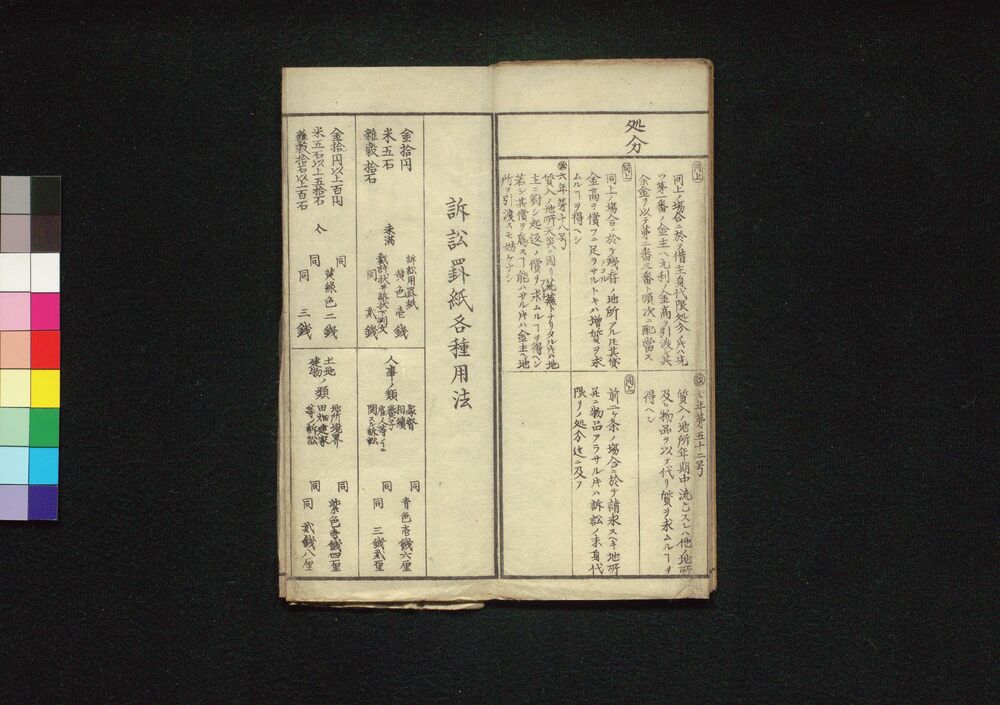 処分
同上
同上ノ場合ニ於テ借主身代限処分ノ片ハ先
ツ第一番ノ金主ヘ元利ノ金高ヲ引渡シ其
余金ヲ以テ第二番三番ト順次ニ配当ス
同上
同上ノ場合ニ於テ残存ノ地所アルモ其貸
金高ヲ償フニ足ラサルトキハ増質ヲ求
ムルヿヲ得ヘシ
六年第十八号
質入ノ地所天災ニ因リ荒蕪トナリタル片ハ地
主ニ対シ起返ノ償ヲ求ムルヿヲ得ヘシ
若シ其償ヲ為スヿ能ハサル片ハ金主ヘ地
所ヲ引渡スモ妨ケナシ
七年第五十二号
質入ノ地所年期中流亡スレハ他ノ地所
及ヒ物品ヲ以テ代リ質ヲ求ムルヿヲ
得ヘシ
同上
前二ケ条ノ場合ニ於テ請求スヘキ地所
并ニ物品アラサル片ハ訴訟ノ末身代
限リノ処分迄ニ及フ
訴訟罫紙各種用法
金拾円
米五石
雑穀拾石
未満
訴訟用罫紙
黄色壱銭
裁許状並訴状下判文
同 貳銭
金拾円以上百円
米五石以上五拾石
雑穀拾石以上百石
仝
同 黄緑色二銭
同 同 三銭
人事ノ類
家督
相続
養子
雇人等ノ事ニ
関スル訴訟
同 青色壱銭六厘
同 同 三銭貳厘
土地
建物ノ類
地所境界
田畑建家
等ノ訴訟
同 紫色壱銭四厘
同 同 貳銭八厘